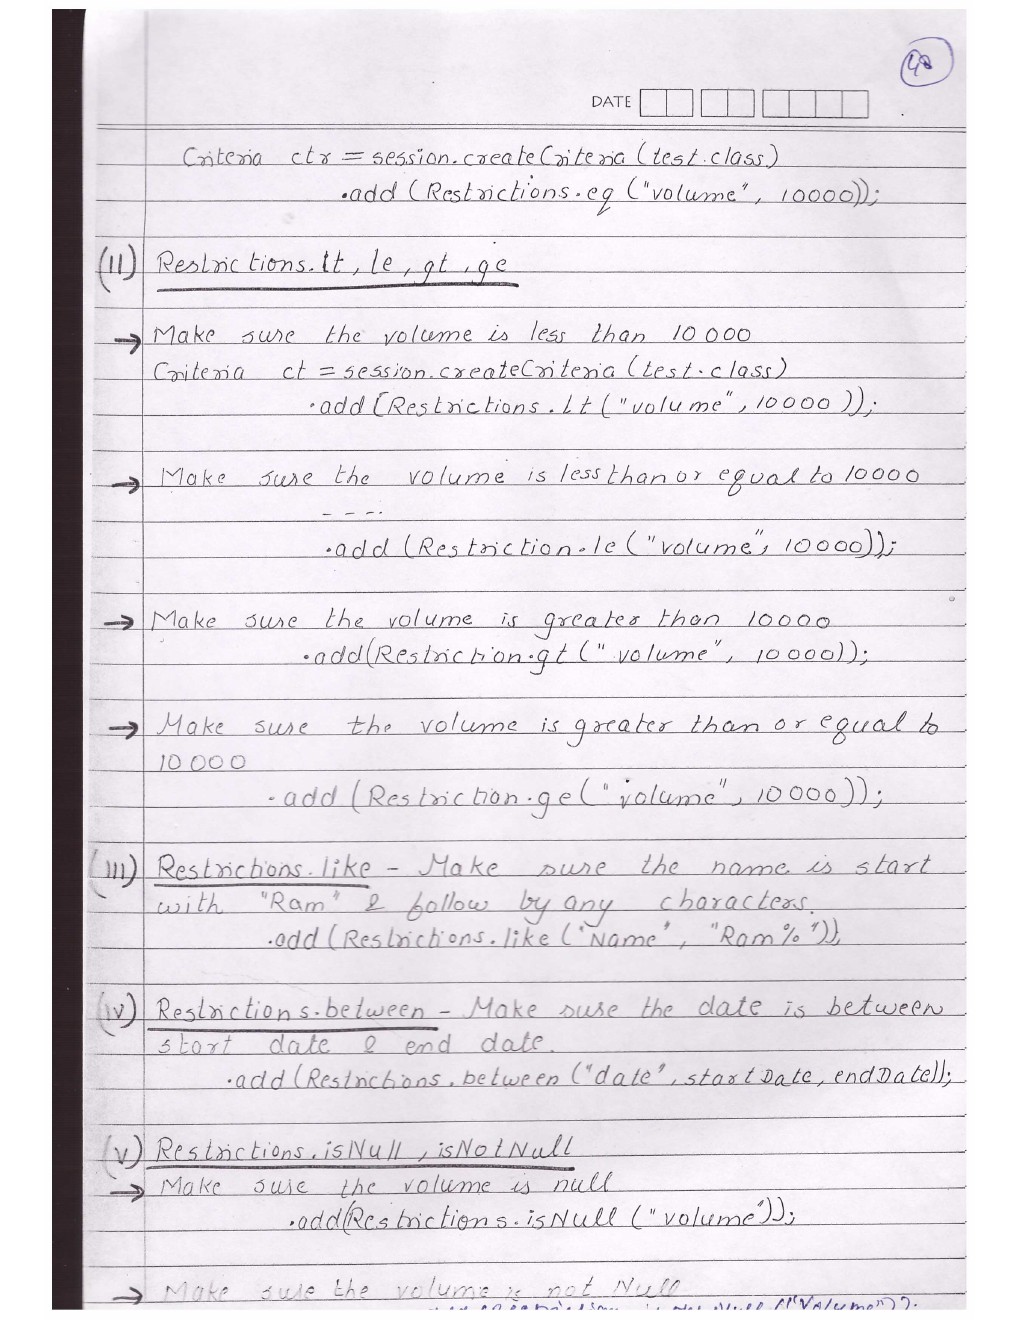 48
DATE
Criteria ctr = session.createCriteria (test.class)
.add (Restrictions.eq ("volume", 10000));
(II) Restrictions.lt, le, gt, ge
→ Make sure the volume is less than 10000
Criteria ct = session.createCriteria (test.class)
.add (Restrictions.lt ("volume", 10000));
→ Make sure the volume is less than or equal to 10000
- - - -
.add (Restriction.le ("volume", 10000));
→ Make sure the volume is greater than 10000
.add(Restriction.gt ("volume", 10000));
→ Make sure the volume is greater than or equal to
10000
.add (Restriction.ge ("volume", 10000));
(III) Restrictions.like - Make sure the name is start
with "Ram" & follow by any characters.
.add (Restrictions.like ("Name", "Ram%"));
(IV) Restrictions.between - Make sure the date is between
start date & end date.
.add (Restrictions.between ("date", startDate, endDate));
(V) Restrictions.isNull, isNotNull
→ Make sure the volume is null
.add(Restrictions.isNull ("volume"));
→ Make sure the volume is not Null
("Volume"));